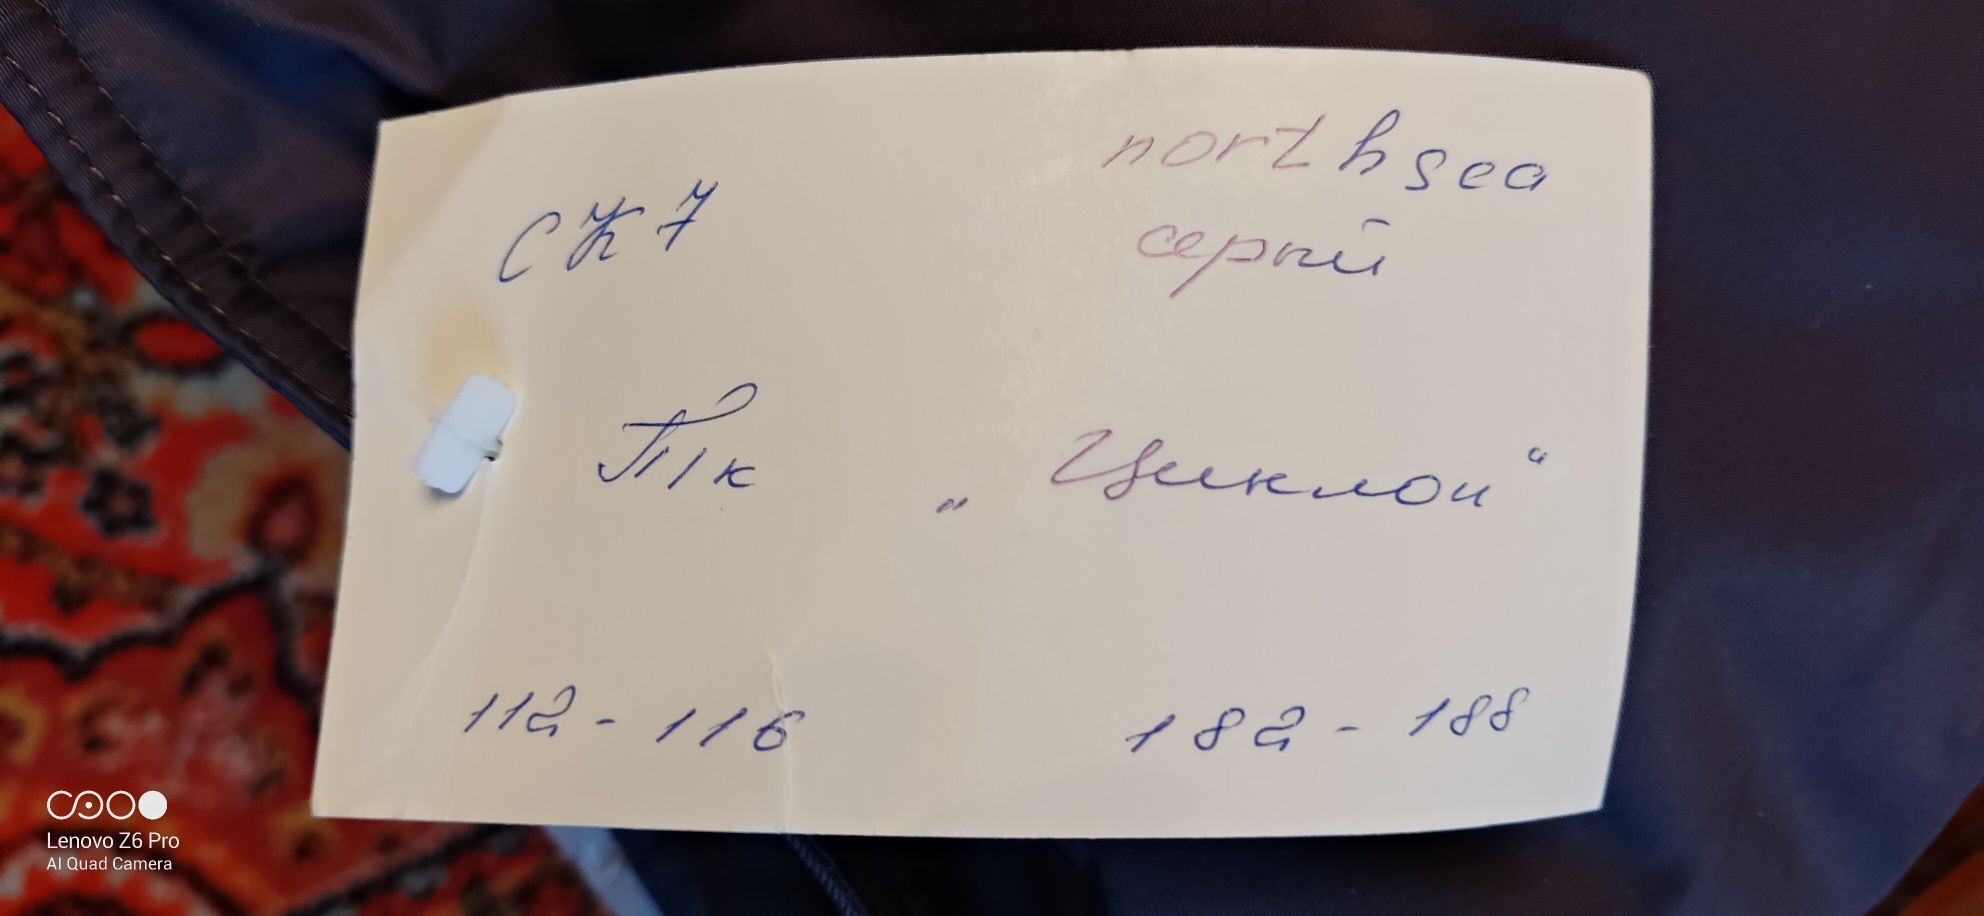 northsea
СК 7
серый
ТТк „Циклон“
112 - 116 182 - 188
Lenovo Z6 Pro
AI Quad Camera